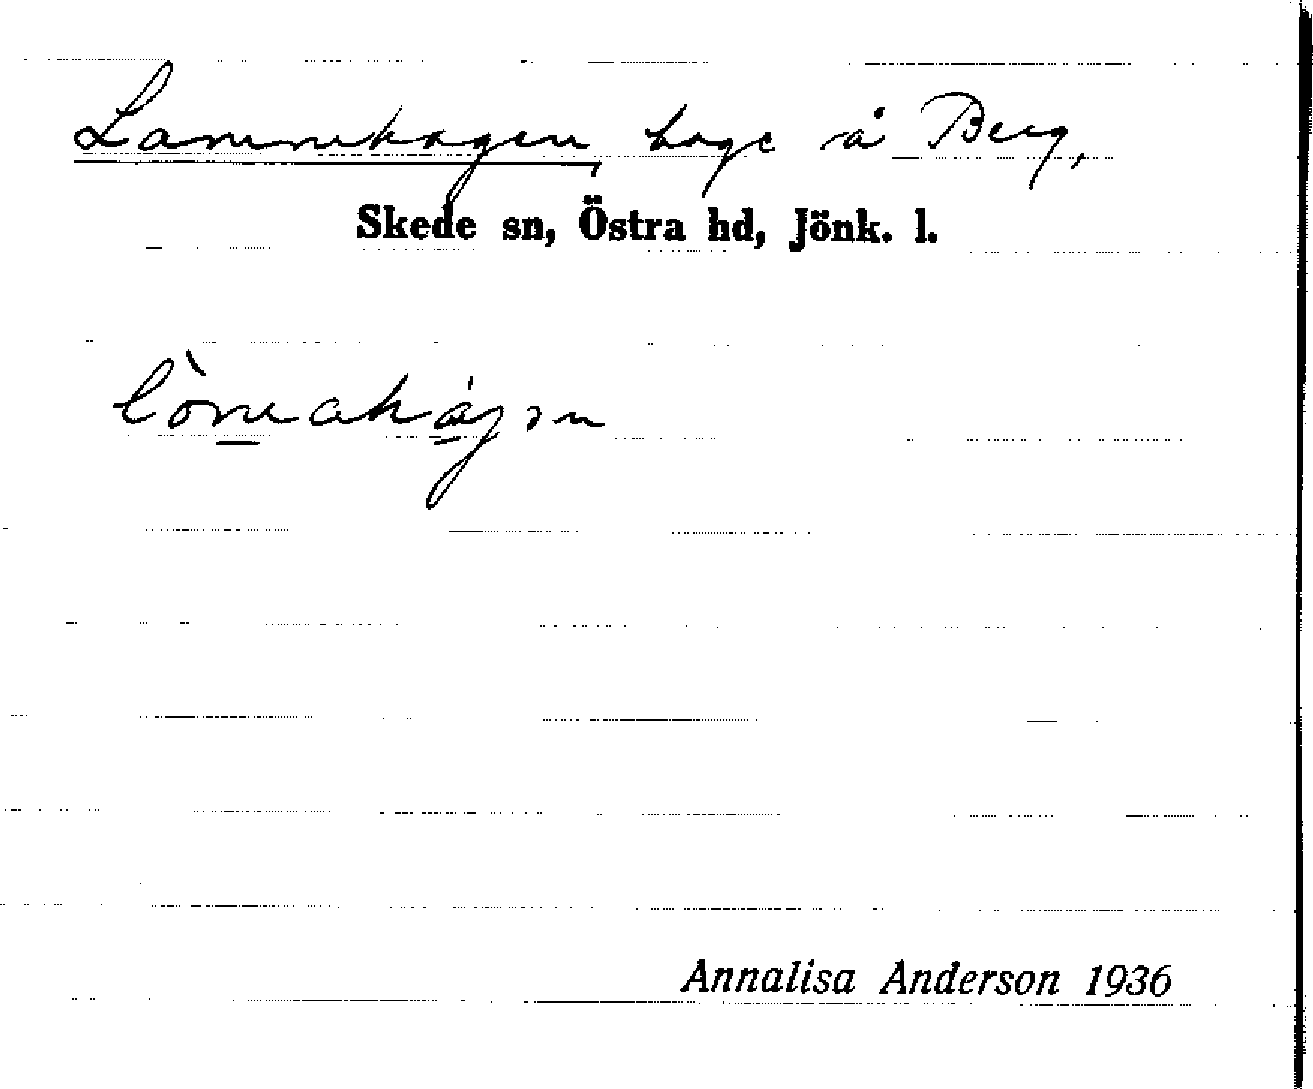 Lammhagen, hage å Berg,
Skede sn, Östra hd, Jönk. l.
Annalisa Anderson 1936